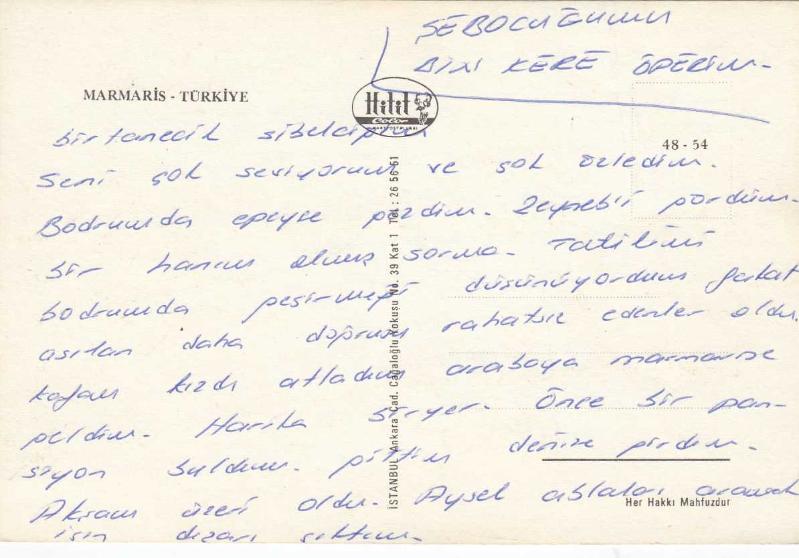 ŞEBOCUĞUMU
BİN KERE ÖPERİM-
MARMARİS - TÜRKİYE
Hitit
Color
48 - 54
birtanecik sibelciğim
Seni çok seviyorum ve çok özledim.
Bodrumda epeyce gezdim. Zeynebi gördüm.
bir hanım olmuş sorma. Tatilimi
bodrumda geçirmeyi düşünüyordum fakat
asılan daha doğrusu rahatsız edenler oldu.
kafam kızdı atladım arabaya marmarise
geldim. Harika biryer. Önce bir pan-
siyon buldum. gittim denize girdim.
Akşam üzeri oldu. Aysel ablaları aramak
için dışarı çıktım.
İSTANBUL Ankara Cad. Cağaloğlu Yokuşu No. 39 Kat 1 Tel : 26 56 61
Her Hakkı Mahfuzdur